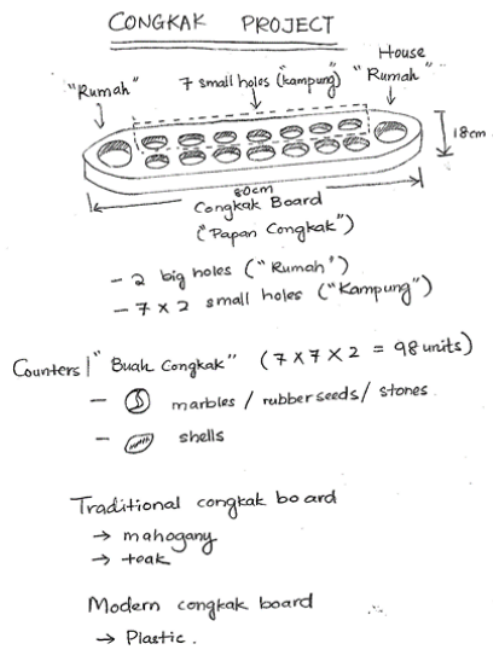 CONGKAK PROJECT
House
"Rumah" 7 small holes ("kampung") "Rumah"
18cm
80cm
Congkak Board
("Papan Congkak")
- 2 big holes ("Rumah")
- 7 x 2 small holes ("Kampung")
Counters | "Buah Congkak" (7 x 7 x 2 = 98 units)
- marbles / rubber seeds / stones.
- shells
Traditional congkak board
→ mahogany
→ teak
Modern congkak board
→ Plastic.